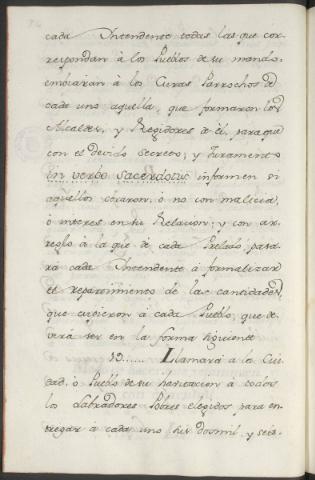 cada Intendente todas las que cor-
respondan à los Pueblos de su mando,
embiaran à los Curas Parrochos de
cada uno aquella, que formaron los
Alcaldes, y Regidores de èl, para que
con el devido secreto, y Juramento
in verbo sacerdotis informen si
aquellos obraron, ò no con malicia,
ò interes en su Relacion; y con ar-
reglo à la que dè cada Prelado, pasa
rà cada Intendente à formalizar
el repartimiento de las cantidades,
que cupieron à cada Pueblo, que de-
verà ser en la forma siguiente
19...... Llamarà a la Ciu
dad, ò Pueblo de su havitacion à todos
los Labradores Pobres elegidos para en-
tregar à cada uno sus dosmil, y seis-